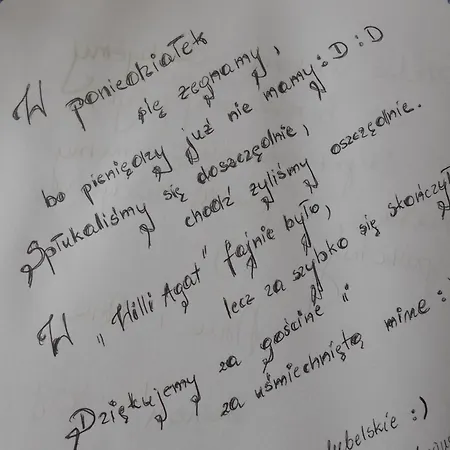 W poniedziałek
się żegnamy,
bo pieniędzy już nie mamy :D :D
Spłukaliśmy się doszczędnie,
chodź żyliśmy oszczędnie.
W „Willi Agat” fajnie było,
lecz za szybko się skończył
Dziękujemy za gościne
za uśmiechniętą mine :
lubelskie :)